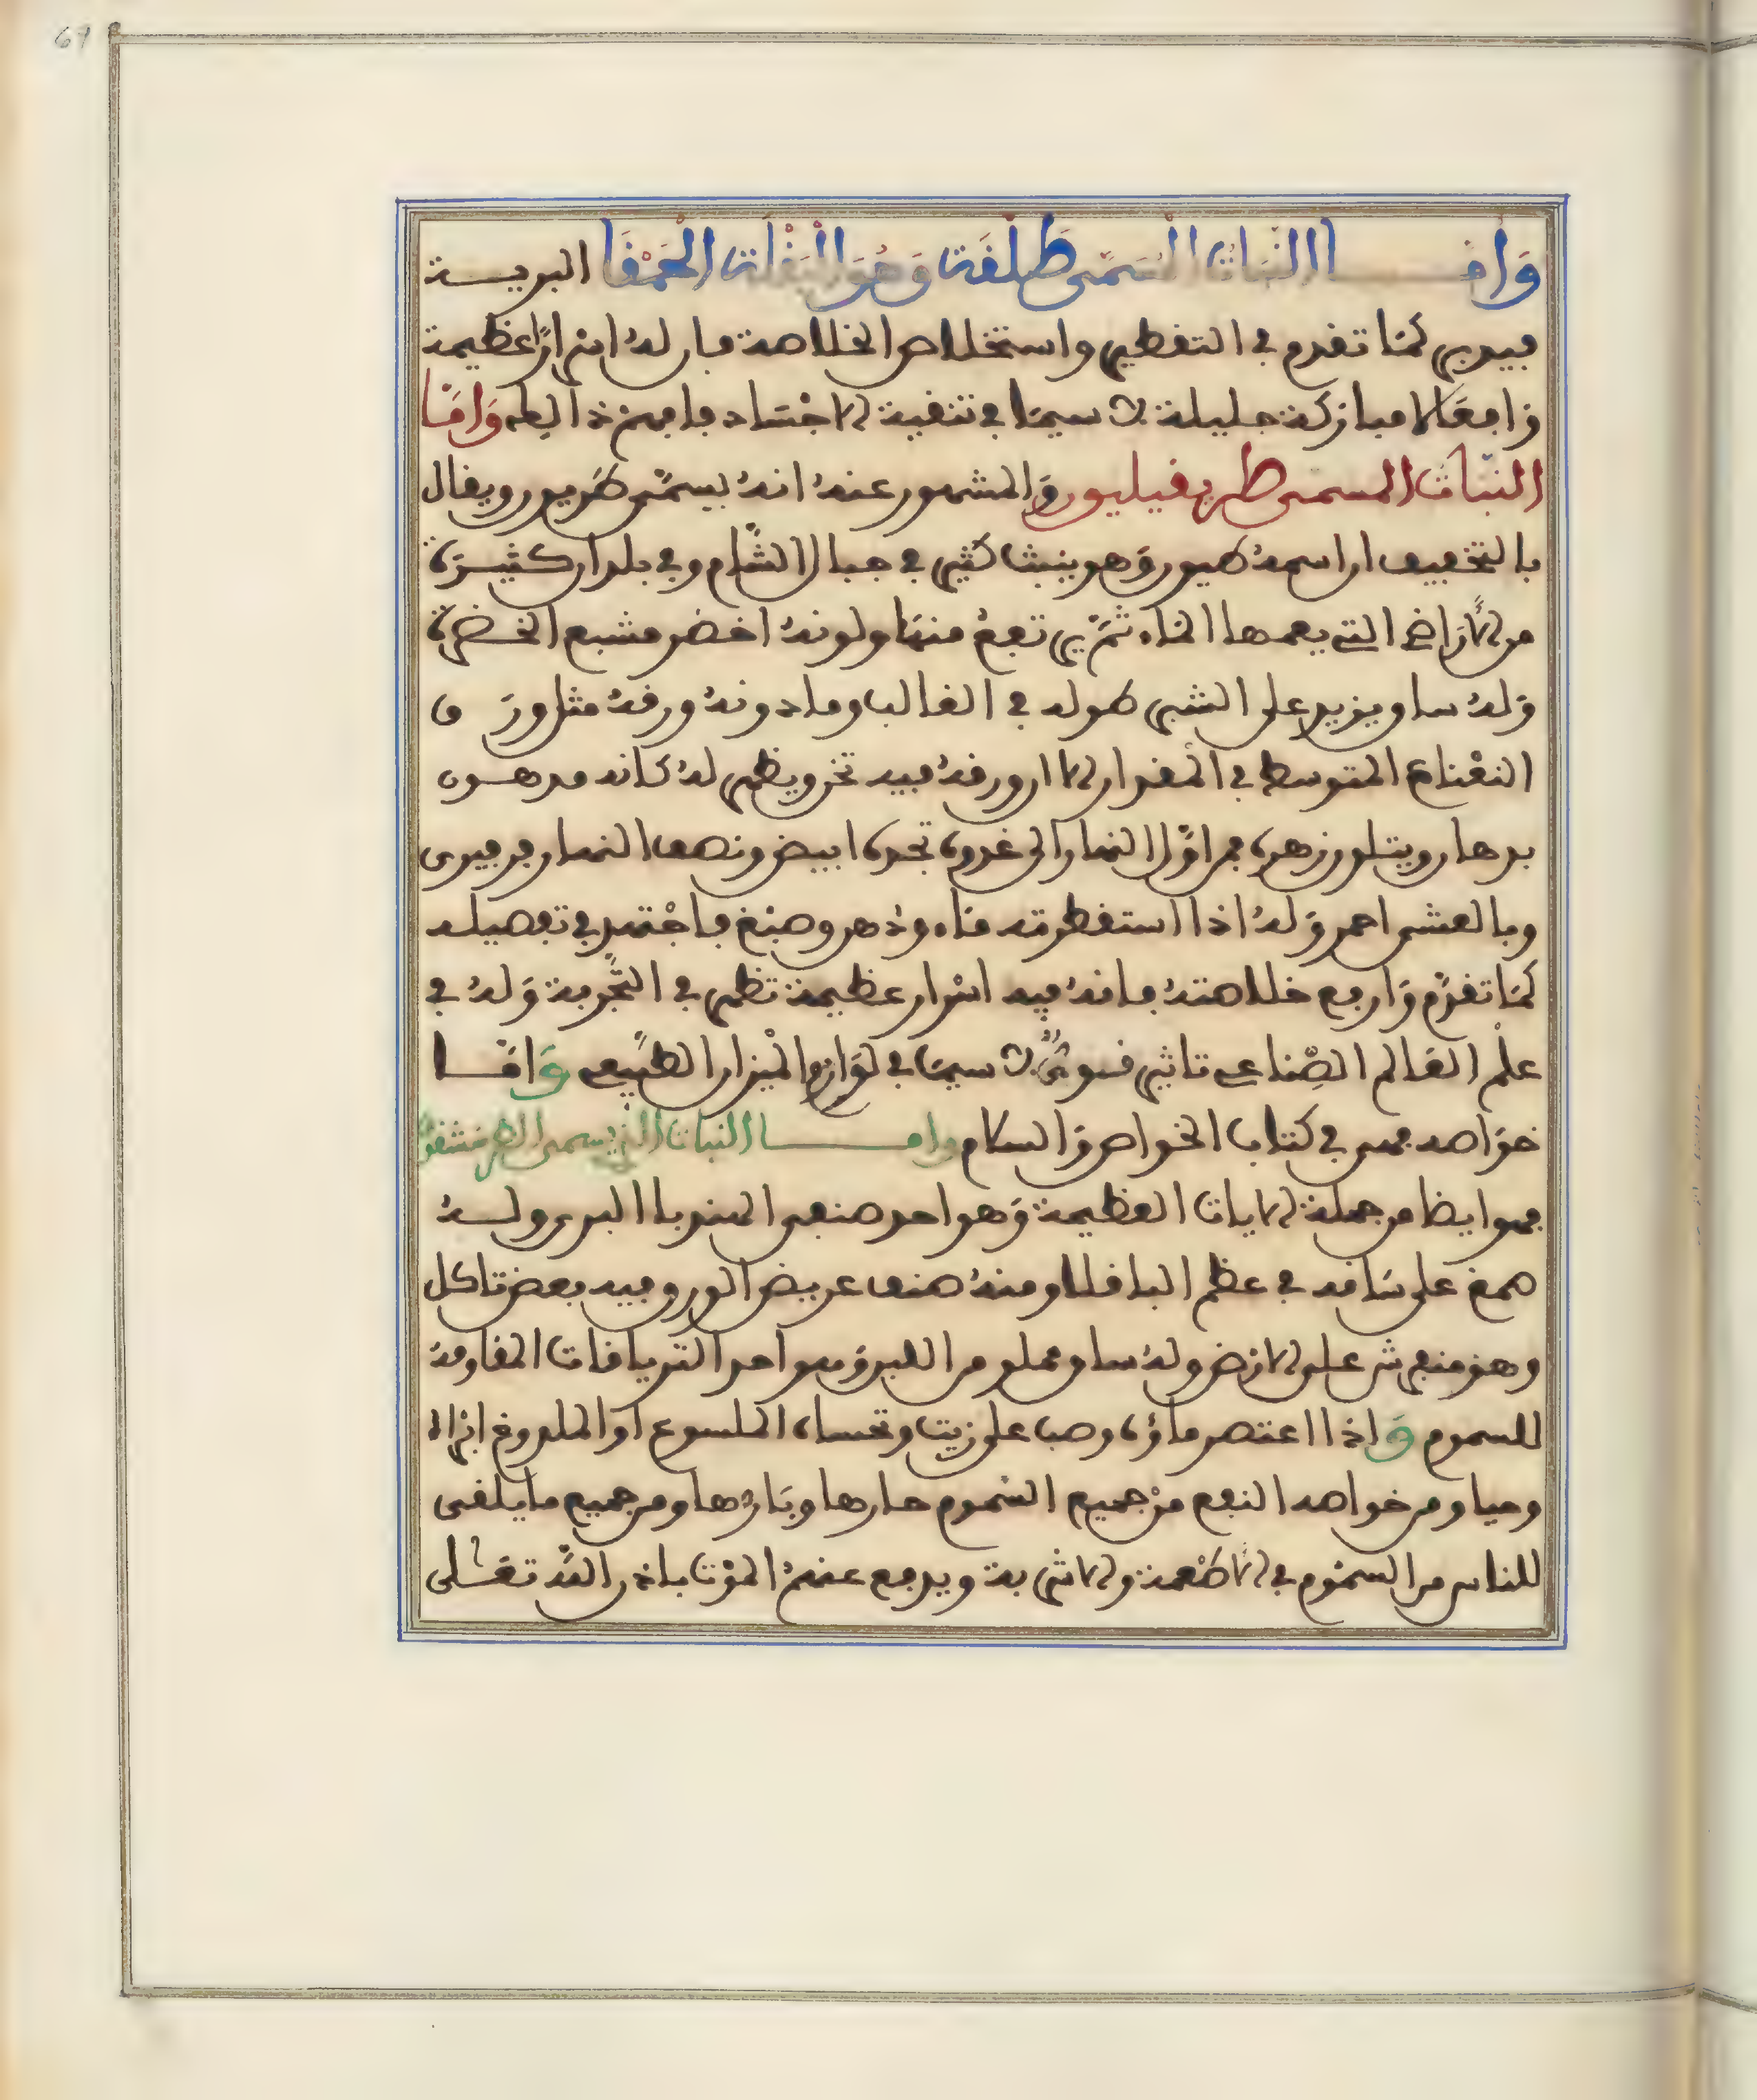 67
وَأَمَّا النَّبَاتُ الْمُسَمَّى طَلْقَة وَهُوَ الْبَقْلَة الْحَمْقَا البرية
فيدبر كمَا تقدم في التقطير واستخلاص الخلاصة فان لهُ اسرارًا عظيمة
وافعَالا مباركة جليلة لا سيمَا في تنقية الاجْسَاد فافهمْ ذالك وَامَّا
النبَات المسمى طريفيليون وَالمشهور عنهُ انهُ يسمَّى طريون ويقال
بالتخفيف ان اسمهُ طيون وَهو ينبت كثير في جبال الشَّام وفي بلدان كثيرَة
من الأرَاضي التي يعمها الماء ثمّ يرتفعُ منهَا ولونهُ اخضر مشبع الخضرة
وَلهُ ساق يزيد على الشبر طوله في الغالب وما دونهُ ورقهُ مثل ورَق
النعْناع المتوسط في المقدار الا ان ورقهُ فيه تخر ويظهر لهُ كانه مدهون
بدهان ويتلون زهره فمن اوَّل النهار الى غدوة تجده ابيض ونصف النهار فرفيرى
وبالعشى احمر وَلهُ اذا استقطرته مَاء ودهن وصبْغ فاجْتهد في تفصيله
كمَا تقدَّم وَارفع خلاصتهُ فانهُ فيه اسْرار عظيمة تظهر في التَّجْربة وَلهُ في
علْم العَالم الصِّناعي تاثير قوىٌّ لا سيمَا في لوَازم الْميزان الطَّبيعي وَامَّا
خوَاصه فهى في كتاب الخواص وَالسلام وامَّا النبات الذي يسمى الطرخشقوق
فهو ايضا من جملة الايات العظيمة وَهو احد صنفي الهندبا البرى ولهُ
صمغ على سَاقه في عظم الباقلا ومنهُ صنف عريض الورق وفيه بعض تاكل
وهو منفرش على الارْض ولهُ ساق مملو من اللبن وَهو احد الترياقات المقاومة
للسموم وَاذا اعتصر ماؤه وصب على زيت وتحساه الملسوع او الملدوغ ابراه
وحيا ومن خواصه النفع منْ جميع السّموم حارها وبَاردها ومن جميع ما يلقى
للناس من السمُوم في الأطْعمة والاشربة ويدفع عنهمُ الموْت باذن اللَّه تعَالى